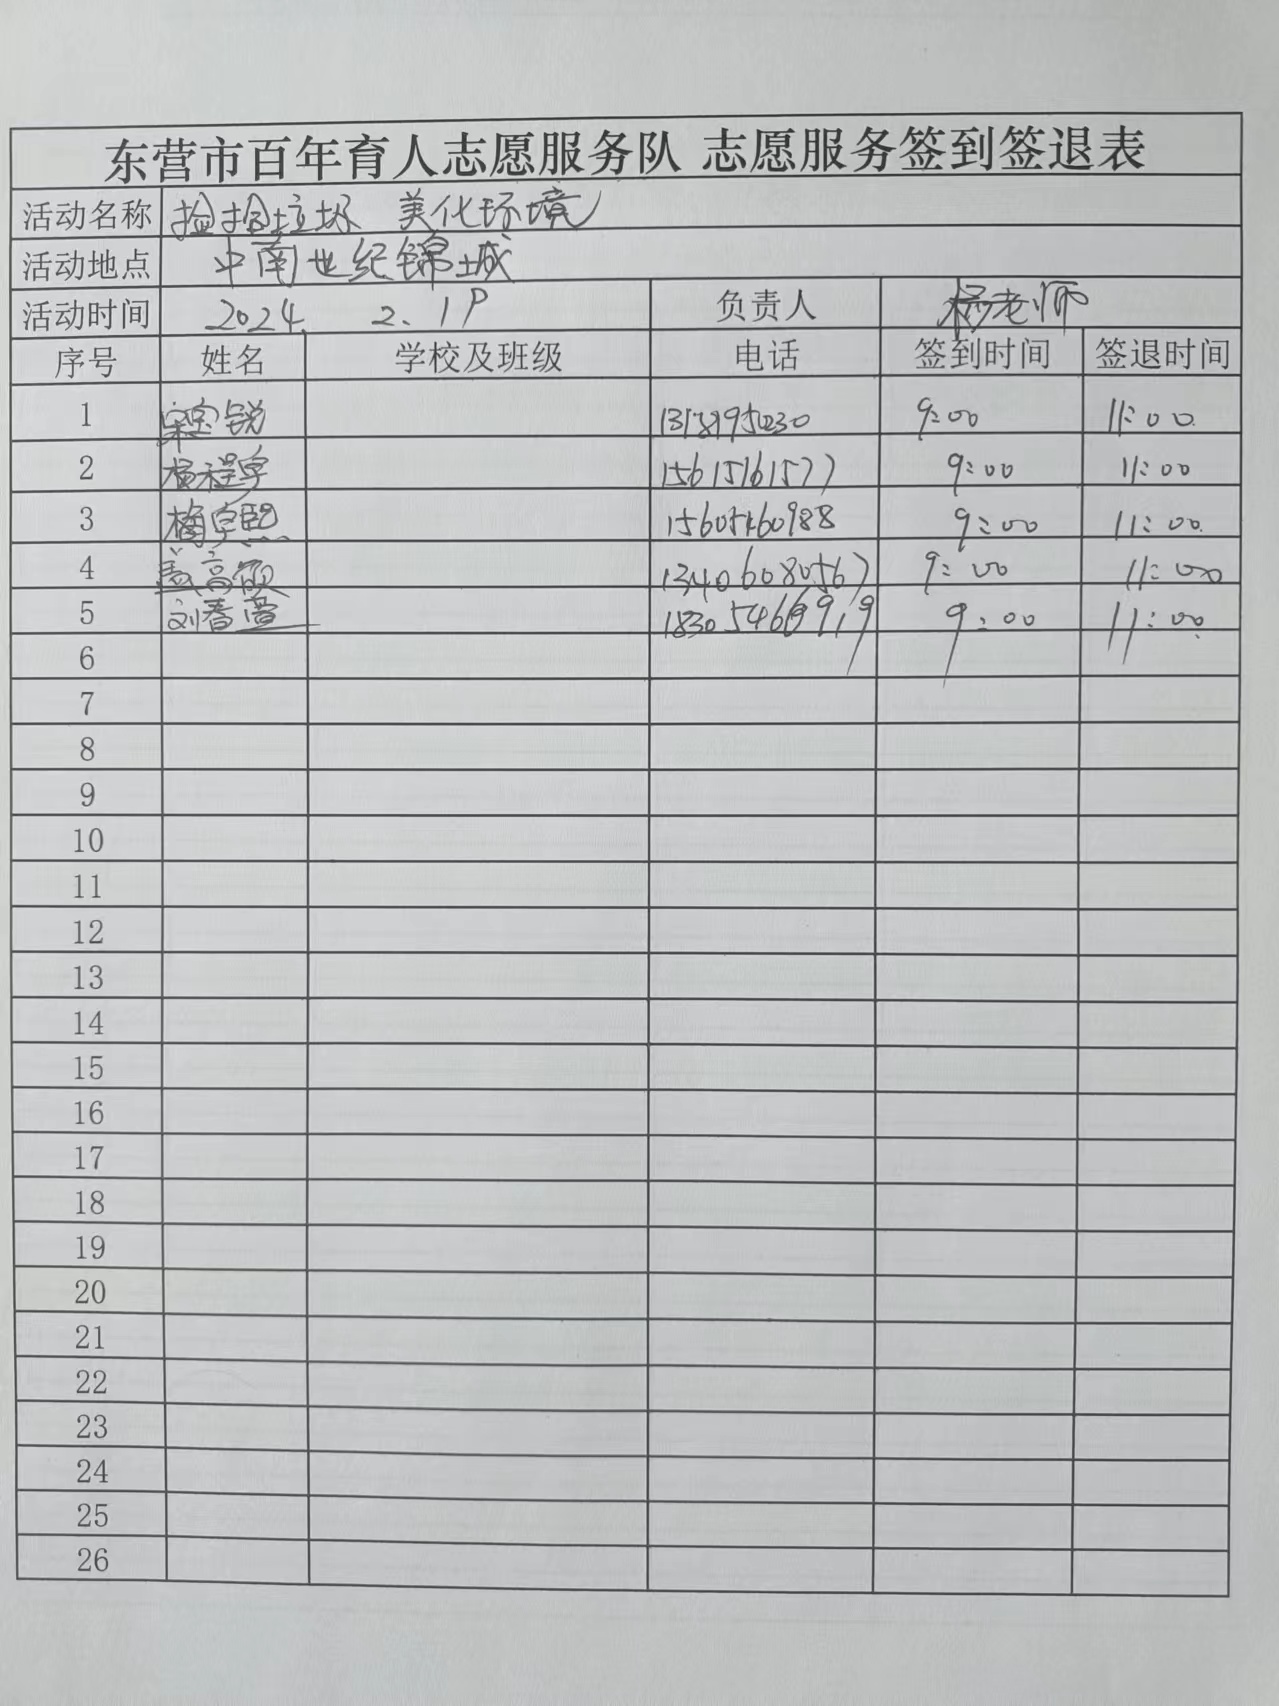 东营市百年育人志愿服务队 志愿服务签到签退表
活动名称 捡拾垃圾 美化环境
活动地点 中南世纪锦城
活动时间 2024. 2. 19 负责人 杨老师
序号 姓名 学校及班级 电话 签到时间 签退时间
1 9:00 11:00
2 杨程宇 15615161577 9:00 11:00
3 15605460988 9:00 11:00
4 盖高硕 13406080567 9:00 11:00
5 刘春萱 9:00 11:00
6
7
8
9
10
11
12
13
14
15
16
17
18
19
20
21
22
23
24
25
26